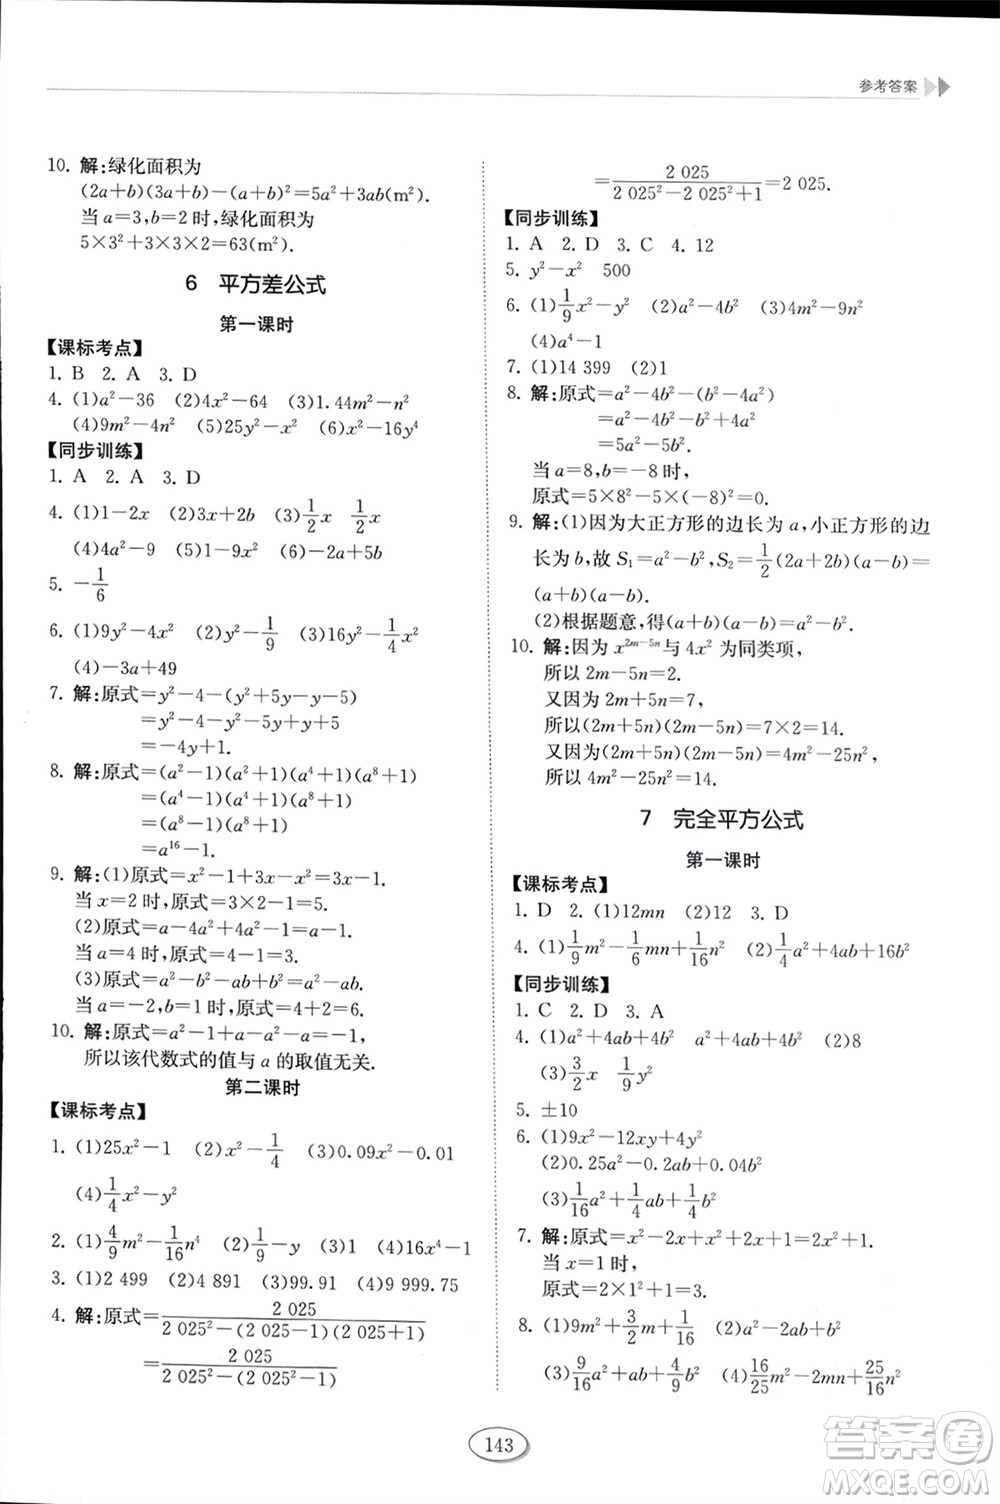 参考答案
10. 解:绿化面积为
(2a+b)(3a+b)-(a+b)²=5a²+3ab(m²).
当 a=3,b=2 时,绿化面积为
5×3²+3×3×2=63(m²).
6 平方差公式
第一课时
【课标考点】
1. B 2. A 3. D
4. (1)a²-36 (2)4x²-64 (3)1.44m²-n²
(4)9m²-4n² (5)25y²-x² (6)x²-16y⁴
【同步训练】
1. A 2. A 3. D
4. (1)1-2x (2)3x+2b (3)1/2x 1/2x
(4)4a²-9 (5)1-9x² (6)-2a+5b
5. -1/6
6. (1)9y²-4x² (2)y²-1/9 (3)16y²-1/4x²
(4)-3a+49
7. 解:原式=y²-4-(y²+5y-y-5)
=y²-4-y²-5y+y+5
=-4y+1.
8. 解:原式=(a²-1)(a²+1)(a⁴+1)(a⁸+1)
=(a⁴-1)(a⁴+1)(a⁸+1)
=(a⁸-1)(a⁸+1)
=a¹⁶-1.
9. 解:(1)原式=x²-1+3x-x²=3x-1.
当 x=2 时,原式=3×2-1=5.
(2)原式=a-4-a²+a²-1=a-1.
当 a=4 时,原式=4-1=3.
(3)原式=a²-b²-ab+b²=a²-ab.
当 a=-2,b=1 时,原式=4+2=6.
10. 解:原式=a²-1+a-a²-a=-1,
所以该代数式的值与 a 的取值无关.
第二课时
【课标考点】
1. (1)25x²-1 (2)x²-1/4 (3)0.09x²-0.01
(4)1/4x²-y²
2. (1)4/9m²-1/16n⁴ (2)1/9-y (3)1 (4)16x⁴-1
3. (1)2 499 (2)4 891 (3)99.91 (4)9 999.75
4. 解:原式=2 025/(2 025²-(2 025-1)(2 025+1))
=2 025/(2 025²-(2 025²-1))
=2 025/(2 025²-2 025²+1)=2 025.
【同步训练】
1. A 2. D 3. C 4. 12
5. y²-x² 500
6. (1)1/9x²-y² (2)a²-4b² (3)4m²-9n²
(4)a⁴-1
7. (1)14 399 (2)1
8. 解:原式=a²-4b²-(b²-4a²)
=a²-4b²-b²+4a²
=5a²-5b².
当 a=8, b=-8 时,
原式=5×8²-5×(-8)²=0.
9. 解:(1)因为大正方形的边长为 a,小正方形的边
长为 b,故 S₁=a²-b²,S₂=1/2(2a+2b)(a-b)=
(a+b)(a-b).
(2)根据题意,得(a+b)(a-b)=a²-b².
10. 解:因为 x²ᵐ⁻⁵ⁿ与 4x² 为同类项,
所以 2m-5n=2.
又因为 2m+5n=7,
所以(2m+5n)(2m-5n)=7×2=14.
又因为(2m+5n)(2m-5n)=4m²-25n²,
所以 4m²-25n²=14.
7 完全平方公式
第一课时
【课标考点】
1. D 2. (1)12mn (2)12 3. D
4. (1)1/9m²-1/6mn+1/16n² (2)1/4a²+4ab+16b²
【同步训练】
1. C 2. D 3. A
4. (1)a²+4ab+4b² a²+4ab+4b² (2)8
(3)3/2x 1/9y²
5. ±10
6. (1)9x²-12xy+4y²
(2)0.25a²-0.2ab+0.04b²
(3)1/16a²+1/4ab+1/4b²
7. 解:原式=x²-2x+x²+2x+1=2x²+1.
当 x=1 时,
原式=2×1²+1=3.
8. (1)9m²+3/2m+1/16 (2)a²-2ab+b²
(3)9/16a²+ab+4/9b² (4)16/25m²-2mn+25/16n²
143
答案圈
MXQE.COM